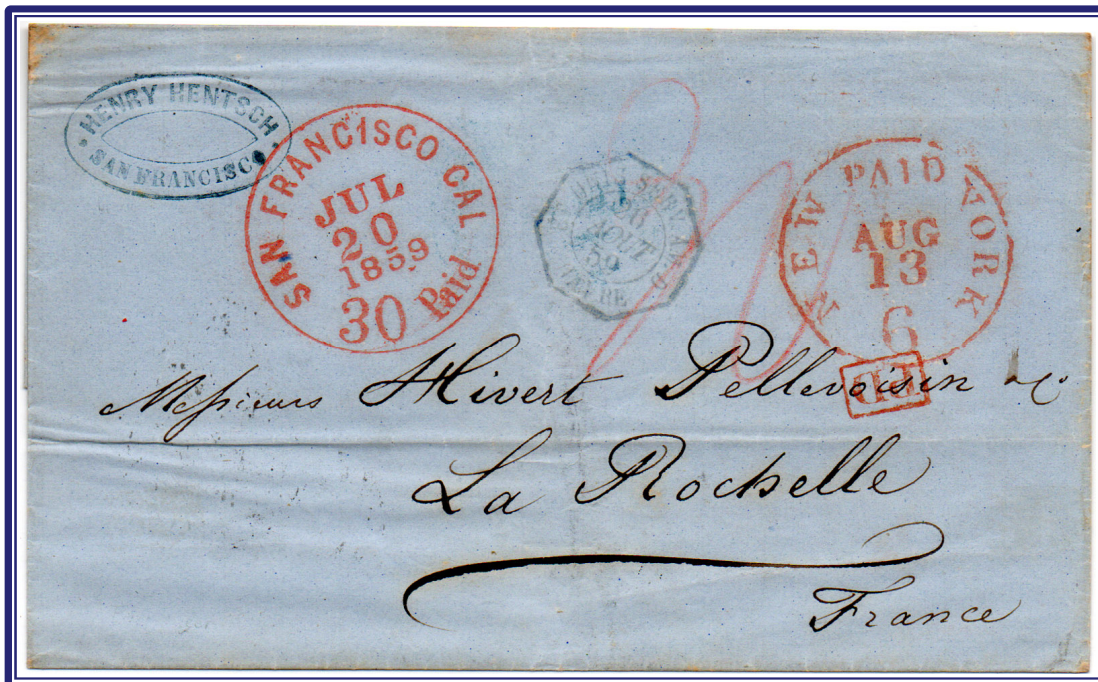 HENRY HENTSCH
SAN FRANCISCO
SAN FRANCISCO CAL
JUL
20
1859
30 Paid
SERV. AM. D
AOUT
59
HAVRE
NEW PAID YORK
AUG
13
6
PD
Messieurs Hivert Pellevoisin & Co
La Rochelle
France